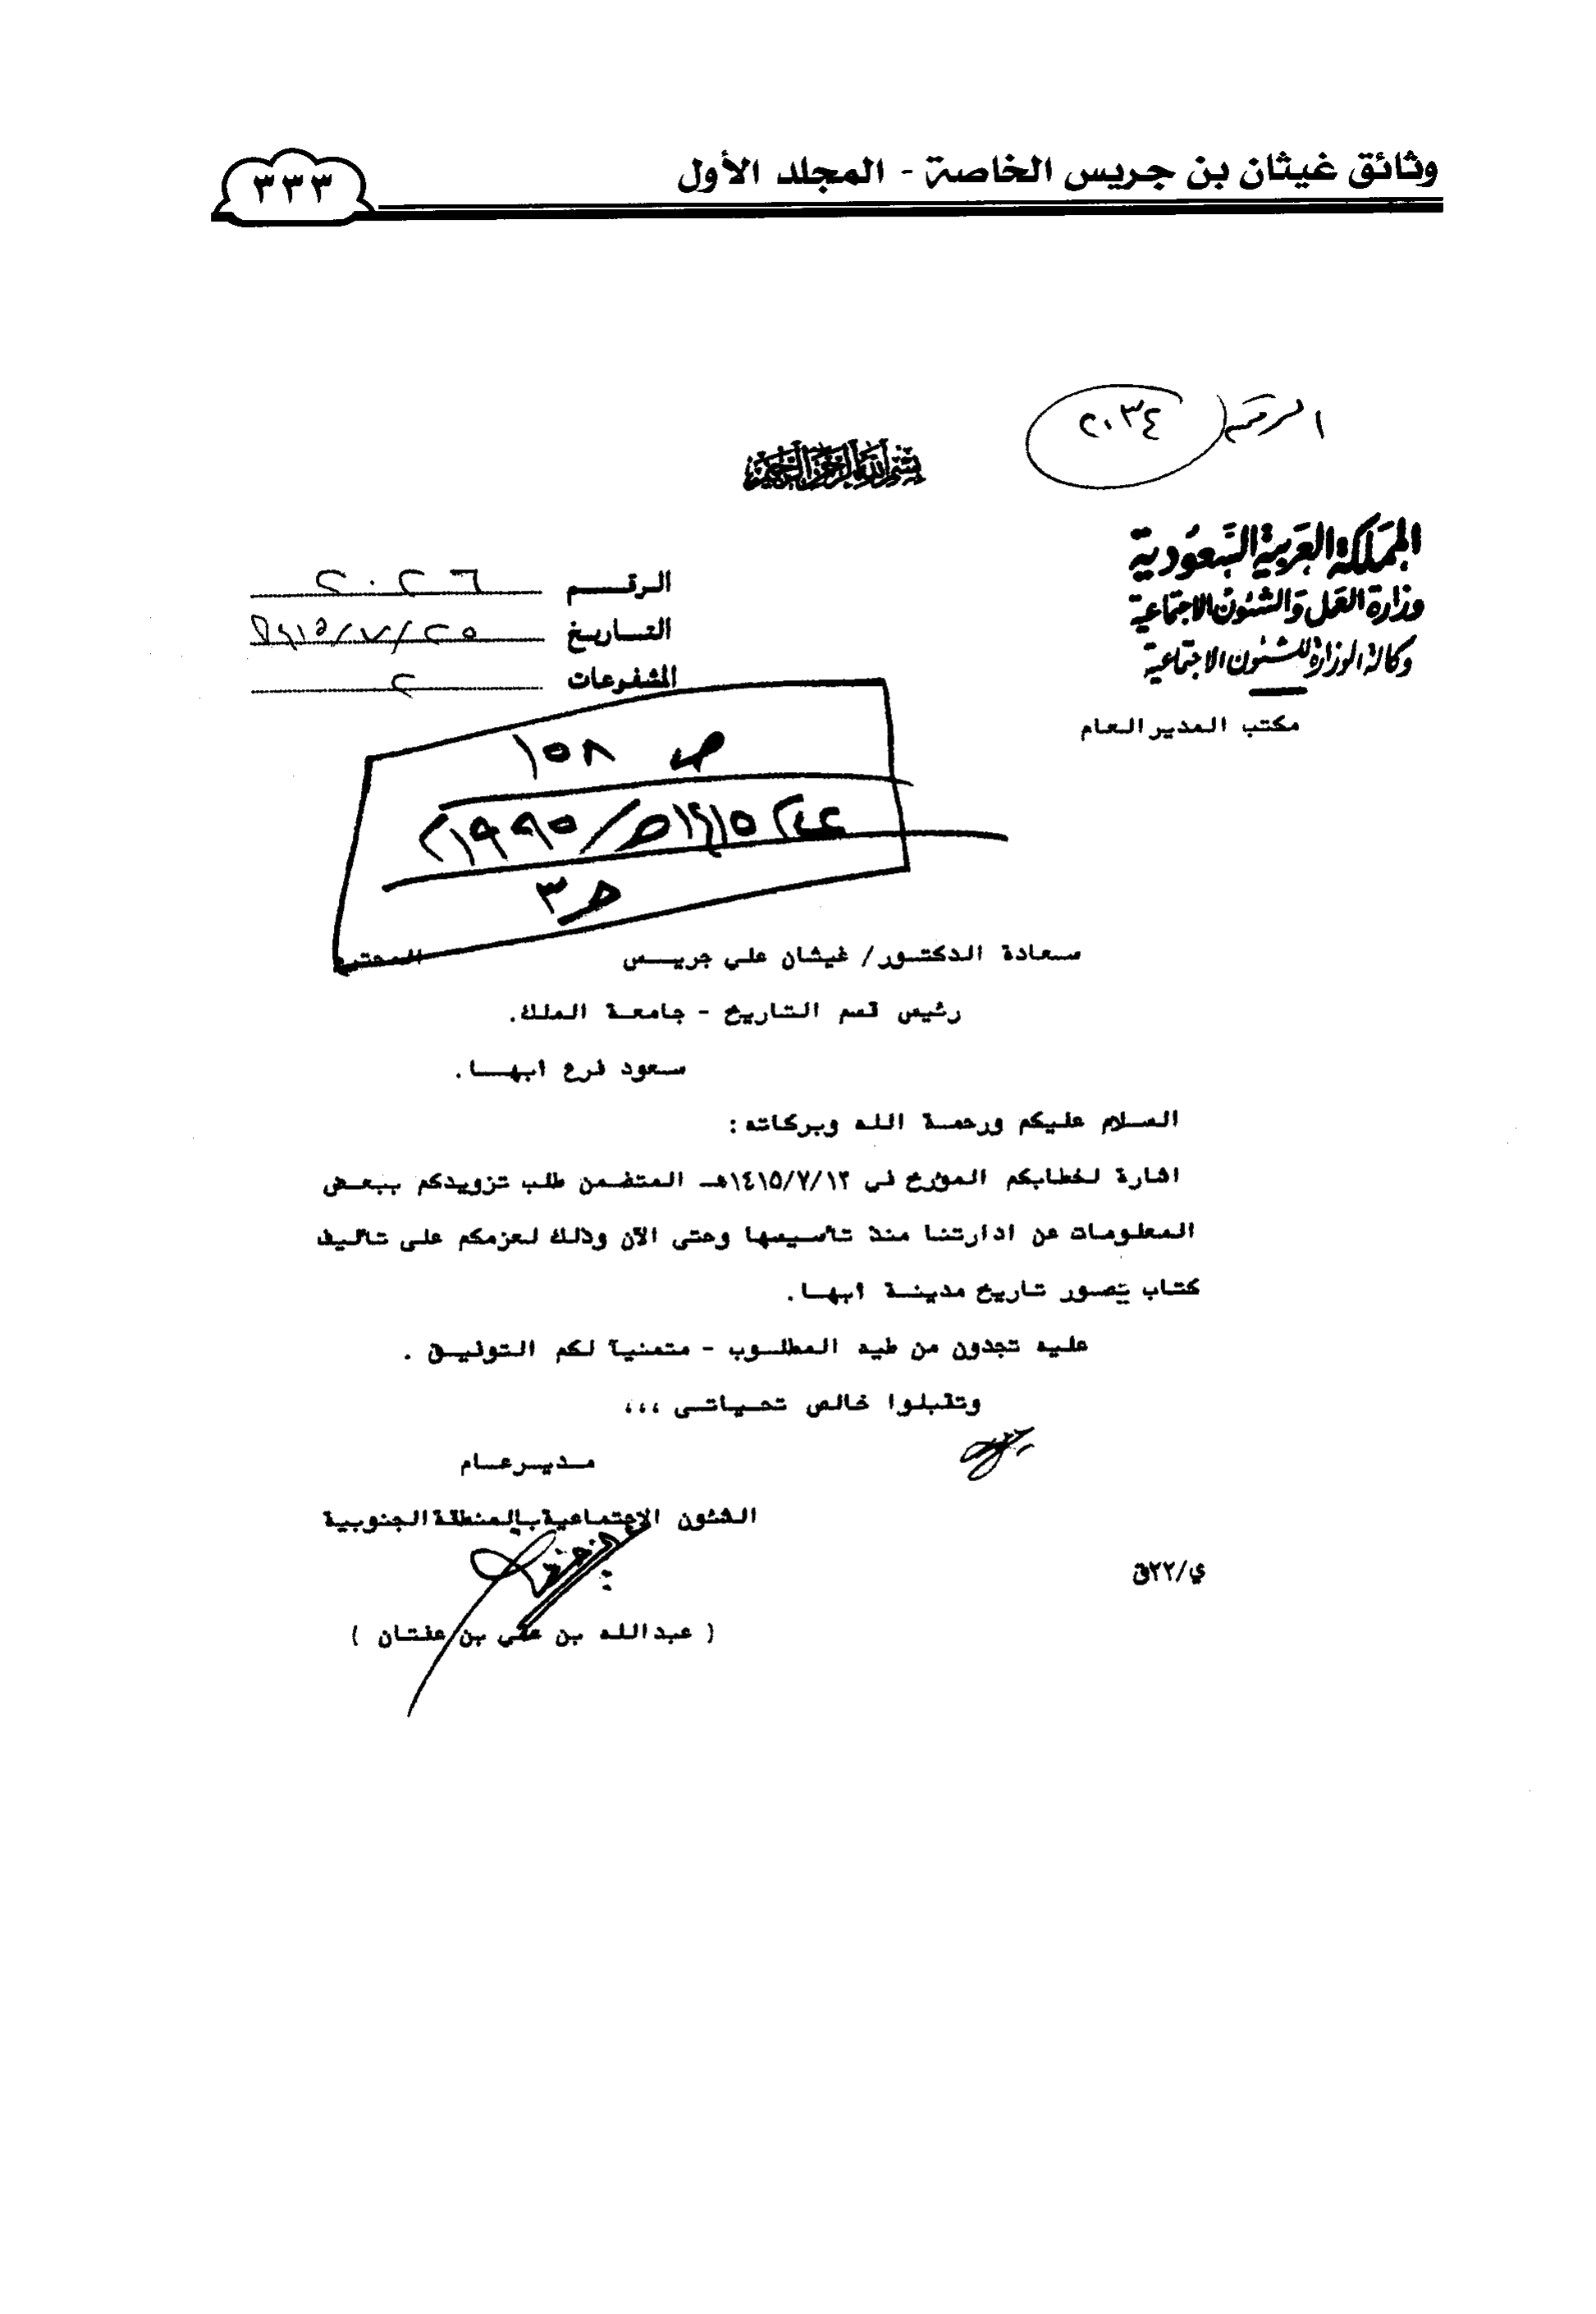 وثائق غيثان بن جريس الخاصة - المجلد الأول
٣٣٣
الرقم ٢٠٣٤
بسم الله الرحمن الرحيم
المملكة العربية السعودية
وزارة العمل والشئون الاجتماعية
وكالة الوزارة للشئون الاجتماعية
مكتب المدير العام
الرقم ٢٠٢٦
التاريخ ٢٥/٧/١٤١٥هـ
المشفوعات ٢
ص ١٥٨
١٤١٥هـ/١٩٩٥م
سعادة الدكتور/ غيثان علي جريس المحترم
رئيس قسم التاريخ - جامعة الملك.
سعود فرع ابها.
السلام عليكم ورحمة الله وبركاته:
اشارة لخطابكم المؤرخ في ١٤١٥/٧/١٢هـ المتضمن طلب تزويدكم ببعض
المعلومات عن ادارتنا منذ تأسيسها وحتى الآن وذلك لعزمكم على تأليف
كتاب يصور تاريخ مدينة أبها.
عليه تجدون من طيه المطلوب - متمنيا لكم التوفيق .
وتقبلوا خالص تحياتى ،،،
مدير عام
الشئون الاجتماعية بالمنطقة الجنوبية
ي/٢٢ق
( عبدالله بن علي بن عفتان )